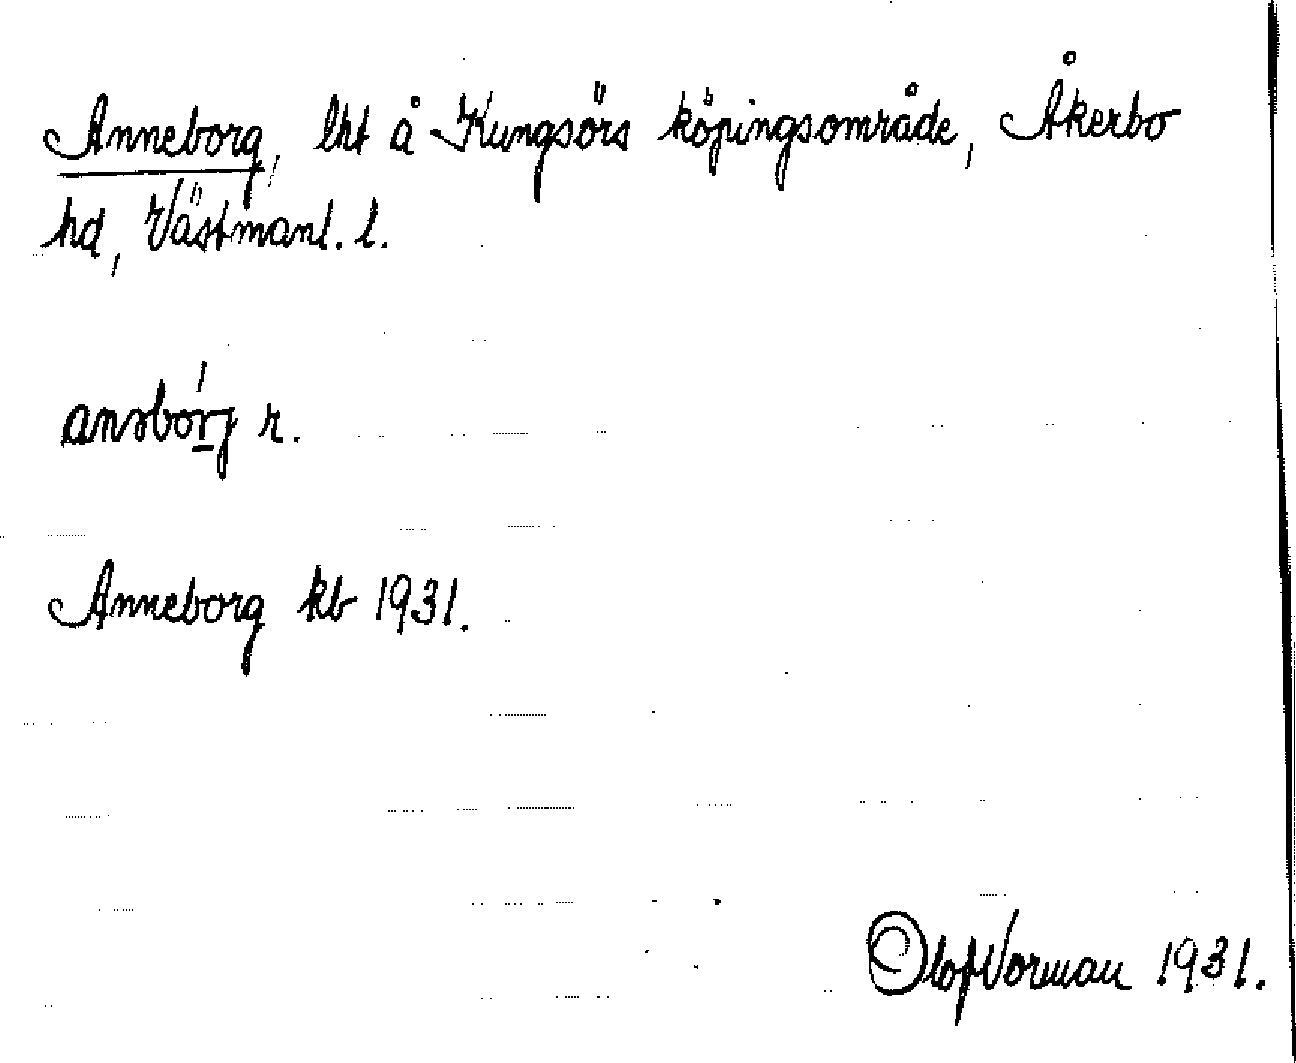 Anneborg, lht å Kungsörs köpingsområde, Åkerbo
hd, Västmanl. l.
r.
Anneborg kb 1931.
Olof Vorman 1931.